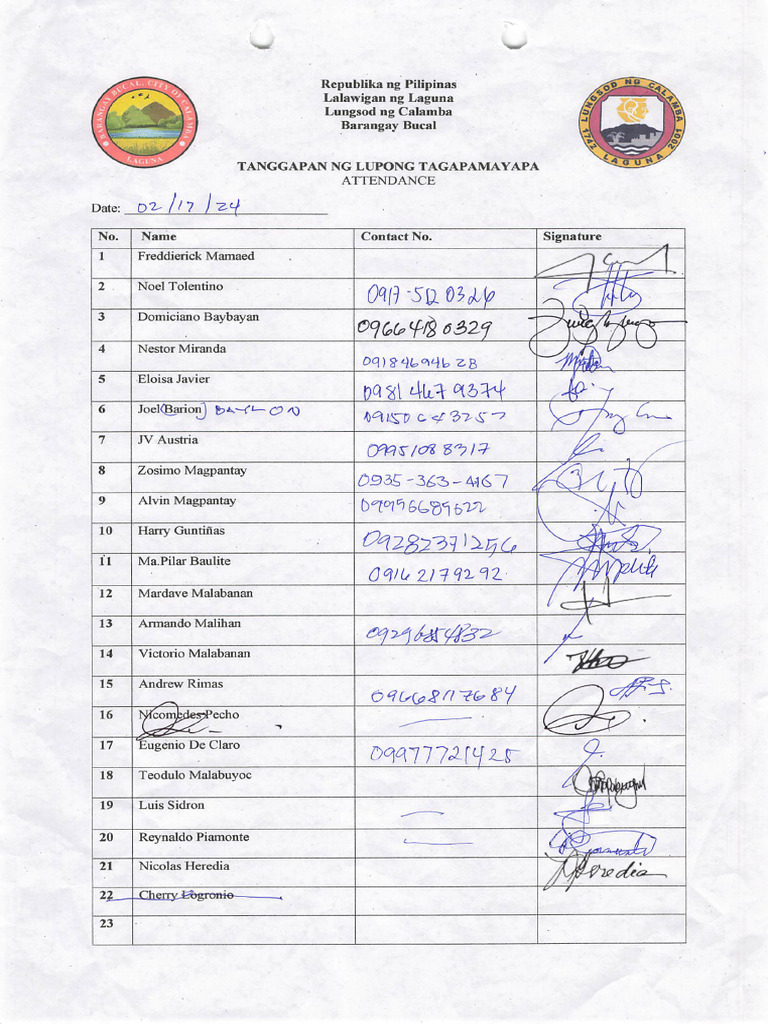 Republika ng Pilipinas
Lalawigan ng Laguna
Lungsod ng Calamba
Barangay Bucal
BARANGAY BUCAL, CITY OF CALAMBA
LAGUNA
LUNGSOD NG CALAMBA
1742 LAGUNA 2001
TANGGAPAN NG LUPONG TAGAPAMAYAPA
ATTENDANCE
Date: 02/17/24
No. Name Contact No. Signature
1 Freddierick Mamaed
2 Noel Tolentino 0917-512 0326
3 Domiciano Baybayan 0966418 0329
4 Nestor Miranda
5 Eloisa Javier 0981 467 9374
6 Joel (Barion) BAYLON
7 JV Austria 09951088317
8 Zosimo Magpantay 0935-363-4167
9 Alvin Magpantay 099956685622
10 Harry Guntiñas 09282371256
11 Ma.Pilar Baulite 0916 2179292
12 Mardave Malabanan
13 Armando Malihan
14 Victorio Malabanan
15 Andrew Rimas 09668117684
16 Nicomedes Pecho
17 Eugenio De Claro 09977721425
18 Teodulo Malabuyoc
19 Luis Sidron
20 Reynaldo Piamonte
21 Nicolas Heredia Heredia
22 Cherry Logronio
23